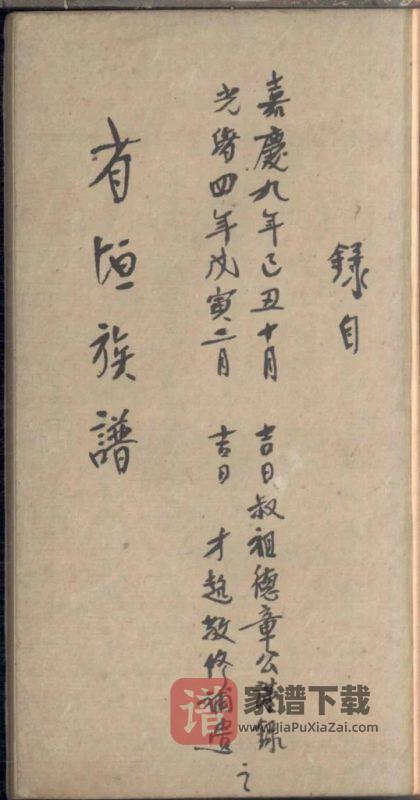 録自
嘉慶九年己丑十月 吉日叔祖德章公謄録
光緒四年戊寅二月 吉日 才趁敬修補遺之
省垣族譜
家谱下载
www.JiaPuXiaZai.com
谱